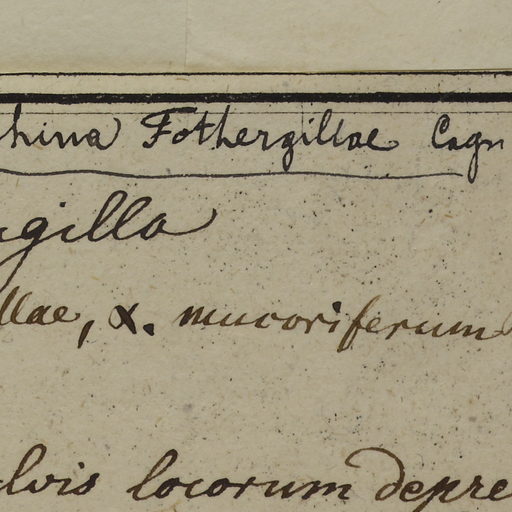 china Fothergillae Cagn
gilla
llae, α. mucoriferum
lvis locorum depre